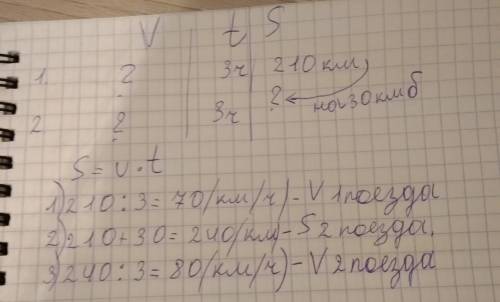 V t S
1. ? 3ч 210 км
2 ? 3ч ? на 30 км б
S = v · t
1) 210 : 3 = 70 (км/ч) - V 1 поезда
2) 210 + 30 = 240 (км - S 2 поезда.
3) 240 : 3 = 80 (км/ч) - V 2 поезда